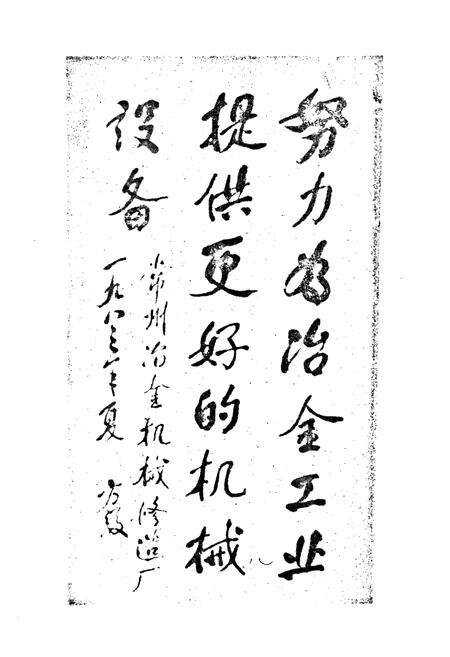 努力为冶金工业
提供更好的机械
设备
常州冶金机械修造厂
一九八三年夏